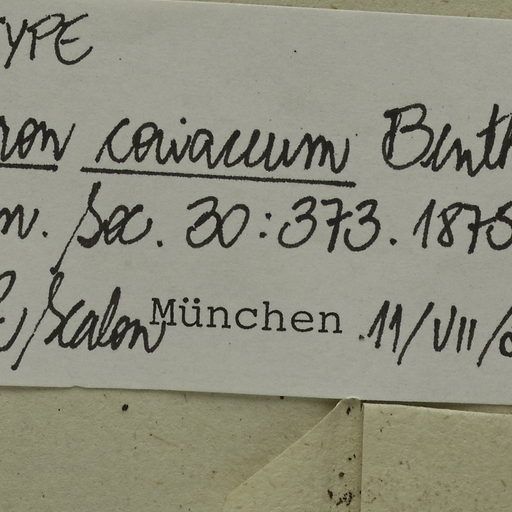 TYPE
ron coriaceum Benth
n. Soc. 30:373. 1875
Scalon München 11/VII/